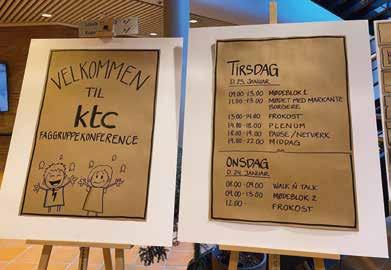 VELKOMMEN
TIL
ktc
FAGGRUPPEKONFERENCE
TIRSDAG
D. 23. JANUAR
09.00-13.00 MØDEBLOK 1
11.00-13.00 MØDET MED MARKANTE
BORGERE
13.00-14.00 FROKOST
14.00-18.00 PLENUM
18.00-19.00 PAUSE/NETVÆRK
19.00-22.00 MIDDAG
ONSDAG
D. 24. JANUAR
08.00-09.00 WALK N TALK
09.00-12.00 MØDEBLOK 2
12.00- FROKOST